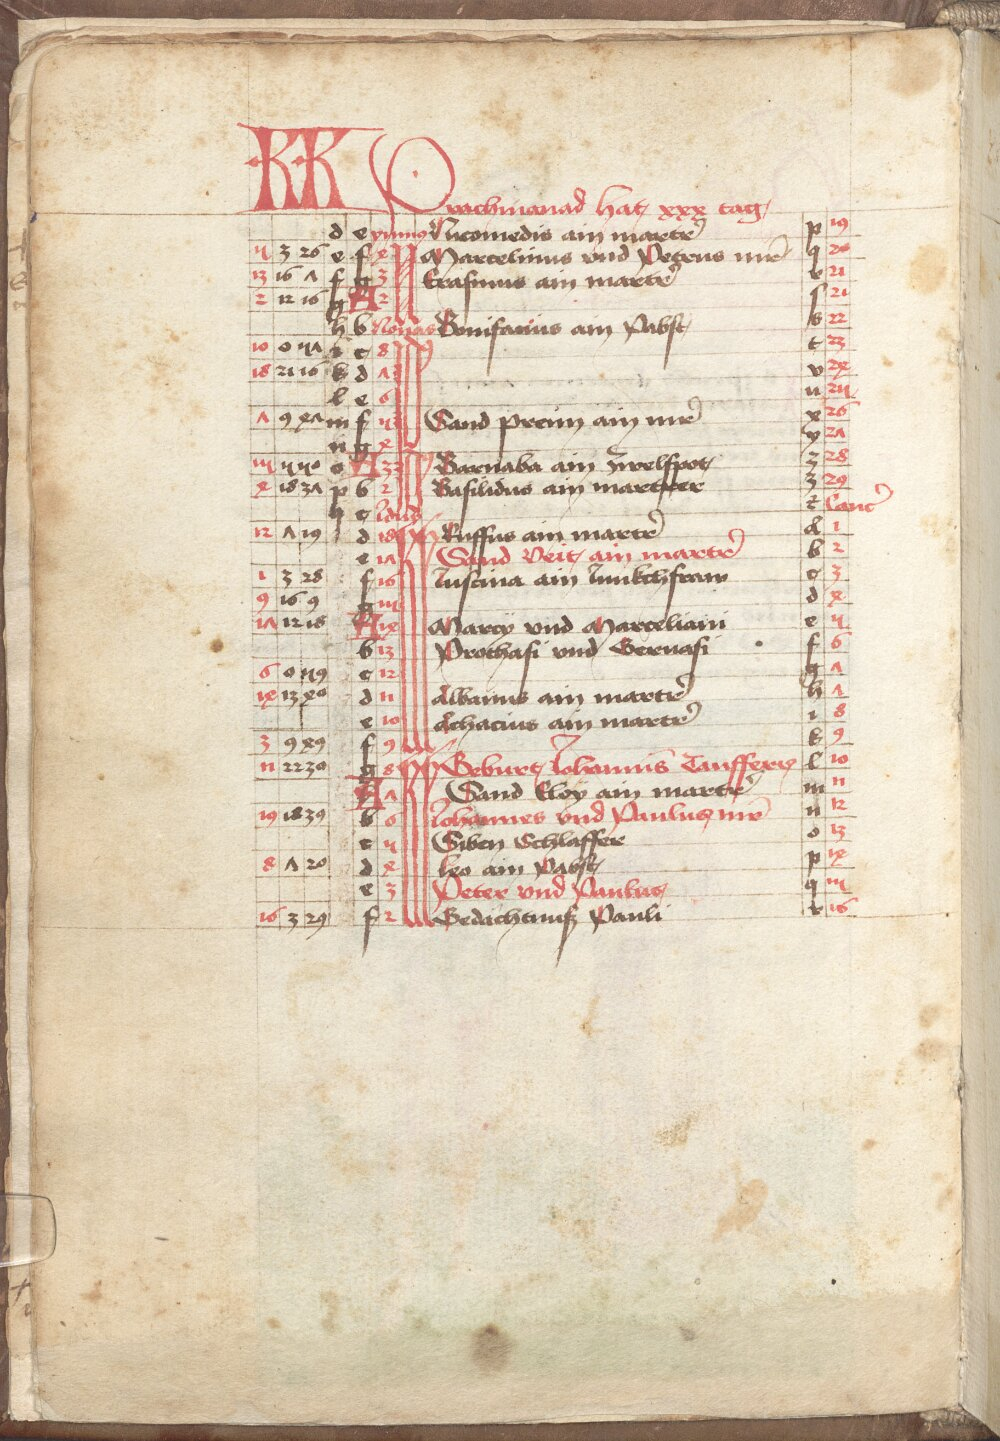 KK Brachmanad hat xxx tag
d e primus Nicomedis ain martr p 19
4 3 26 e f x Marcelinus vnd Petrus mr q 20
13 16 1 f g 3 Erasmus ain martr r 21
2 12 16 g A 2 ſ 21
h b Nonas Bonifacius ain Pabst s 22
10 0 41 i c 8 t 23
18 21 16 k d 7 v 24
l e 6 u 25
7 9 47 m f 5 Sand Preim ain mr x 26
n g 4 y 27
15 5 50 o A 3 Barnaba ain zwelfpot z 28
4 18 37 p b 2 Basilidus ain martrer 3 29
q c Idus
12 7 19 d 18 Ruffus ain martr a 1
e 17 Sand Veit ain martr b 2
1 3 28 f 16 Iustina ain Iunkchfraw c 3
9 16 9 g 15 d 4
17 12 18 A 14 Marcy vnd Marceliani e 5
b 13 Prothasi vnd Geruasi f 6
6 0 59 c 12 g 7
14 13 40 d 11 Albanus ain martr h
e 10 Achacius ain martr i 8
3 9 49 f 9 k 9
11 22 30 g 8 Geburt Iohannis Tauffers l 10
A 7 Sand Eloy ain martr m 11
19 18 39 b 6 Iohannes vnd Paulus mr n 12
c 5 Siben Schlaffer o 13
8 7 20 d 4 Leo ain Pabst p 14
e 3 Peter vnd Paulus q 15
16 3 29 f 2 Gedachtnuß Pauli r 16